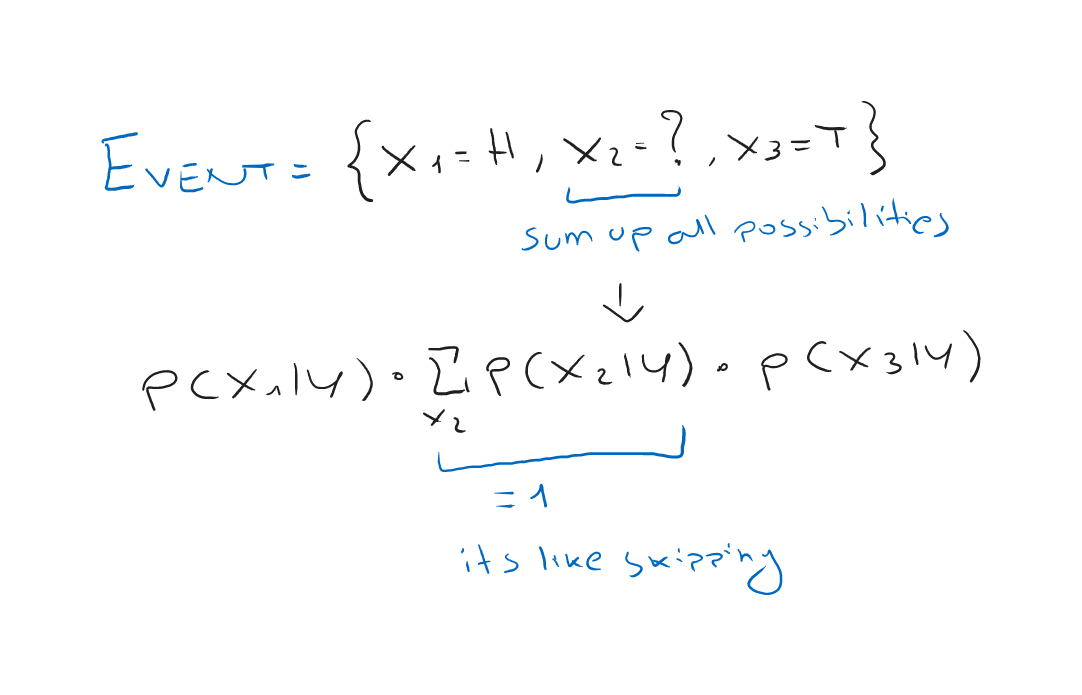 EVENT = {x₁=H, x₂=?, x₃=T}
sum up all possibilities
↓
P(x₁|y) · Σ P(x₂|y) · P(x₃|y)
x₂
= 1
its like skipping